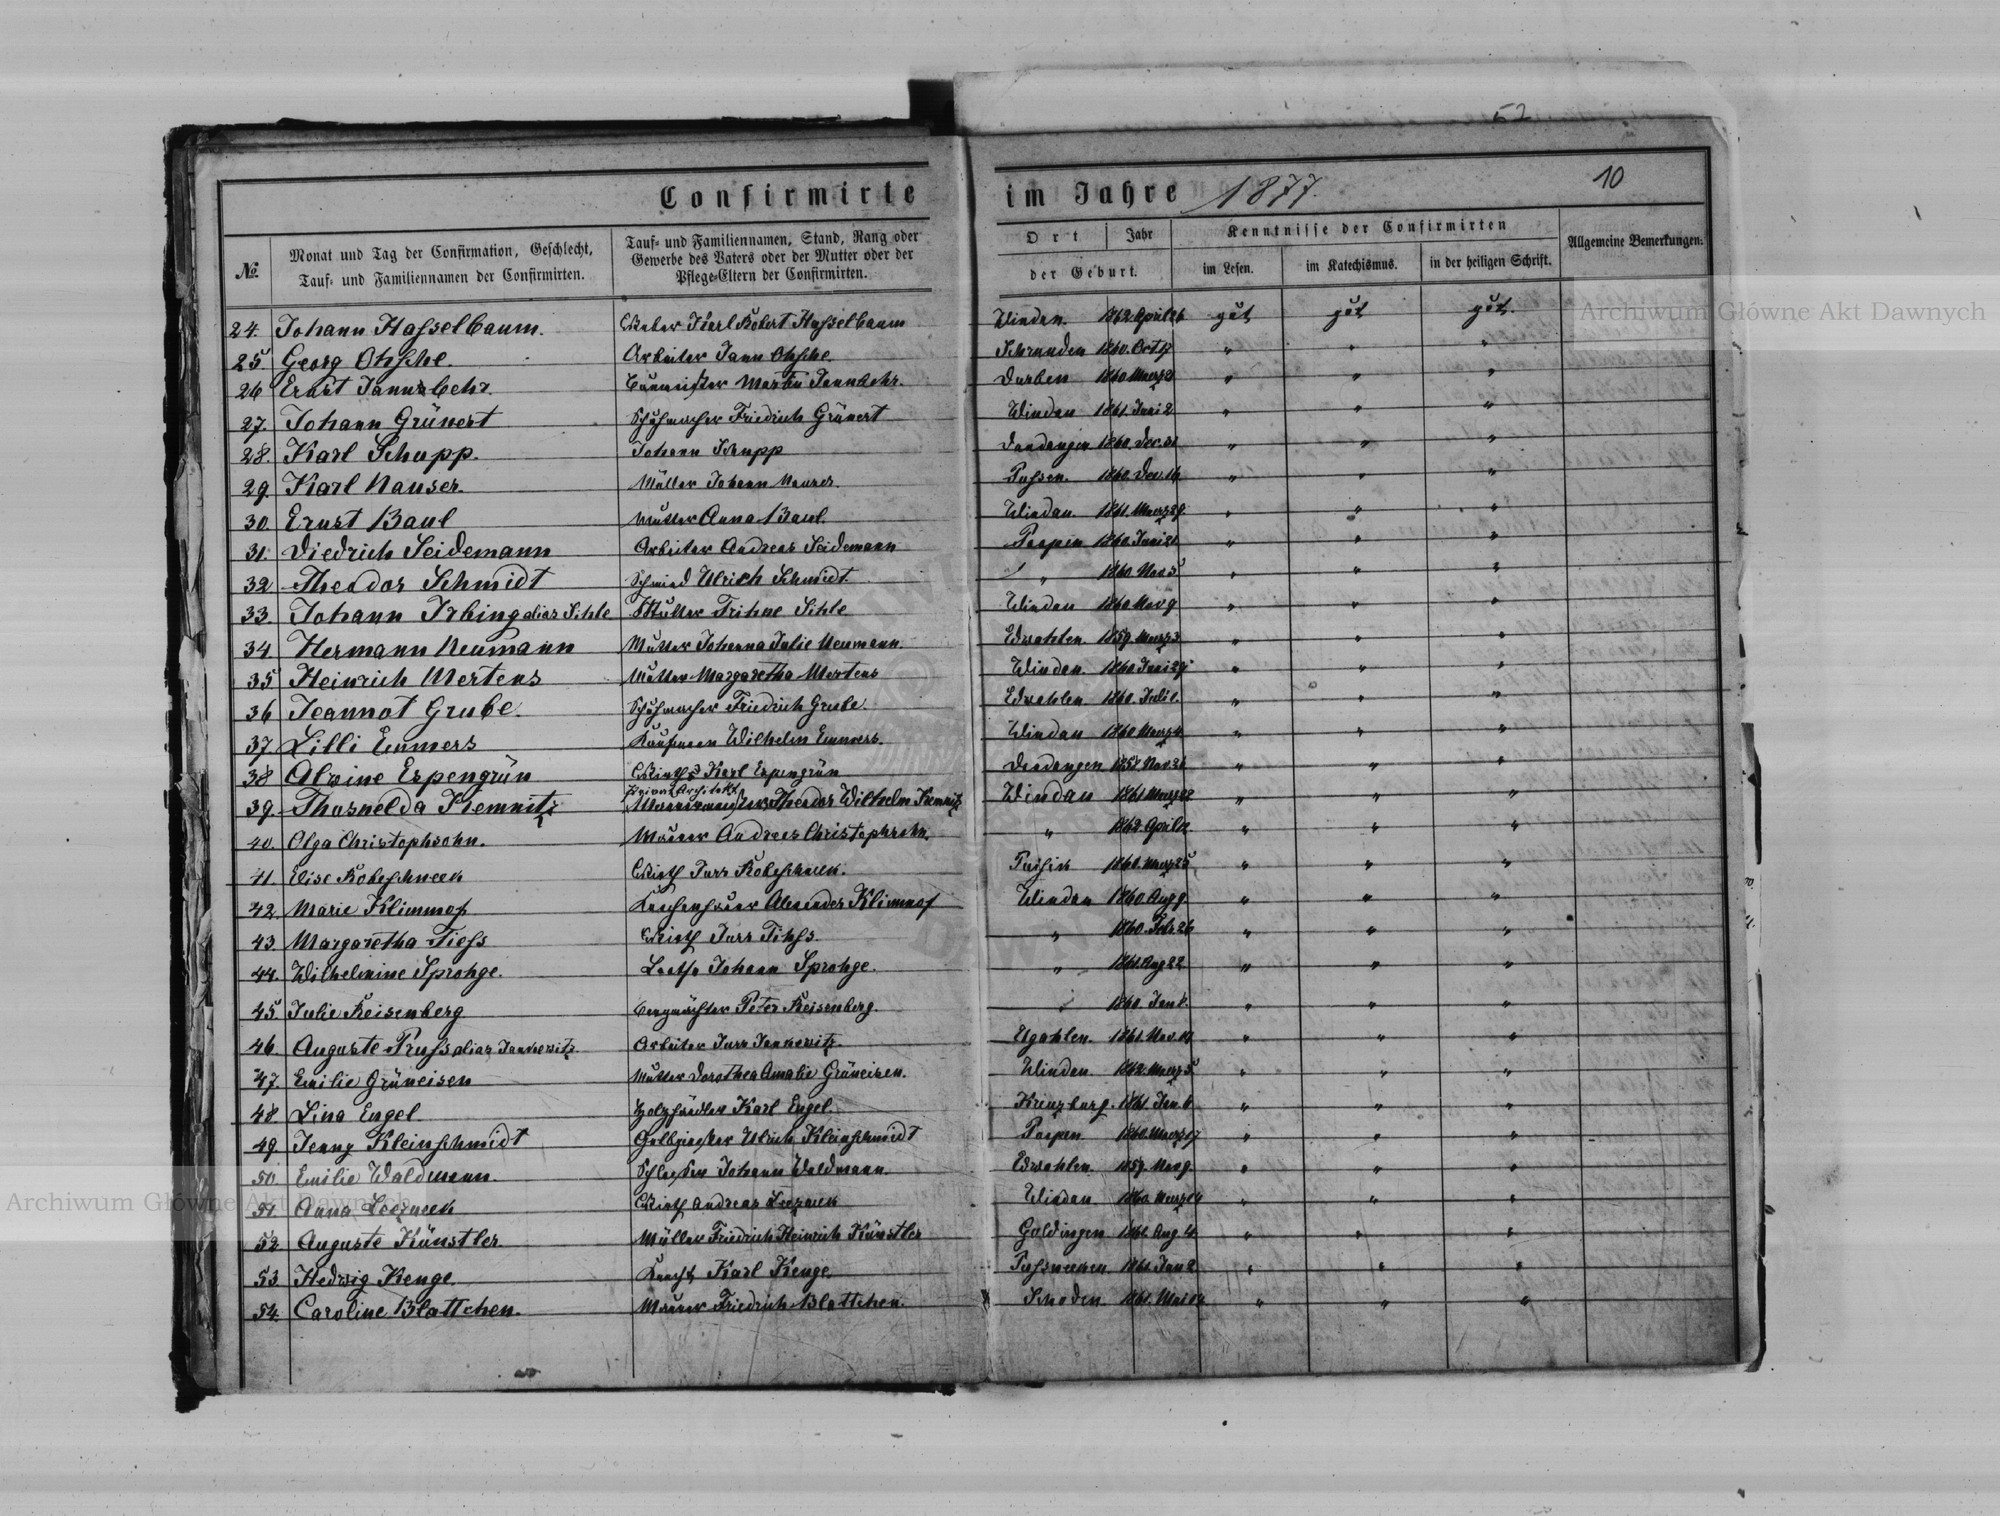 52
10
Confirmirte im Jahre 1877.
№ Monat und Tag der Confirmation, Geschlecht, Tauf- und Familiennamen der Confirmirten. Tauf- und Familiennamen, Stand, Rang oder Gewerbe des Vaters oder der Mutter oder der Pflege-Eltern der Confirmirten. Ort Jahr der Geburt. Kenntnisse der Confirmirten im Lesen. im Katechismus. in der heiligen Schrift. Allgemeine Bemerkungen.
24. Johann Hasselbaum. Weber Karl Robert Hasselbaum Windau. 1862 April 26 gut gut gut.
25. Georg Ohsche. Arbeiter Jann Ohsche. Schrunden 1860. Oct 17 " " "
26 Ernst Jannsbehr. Martin Durben 1860 Maerz " " "
27. Johann Grünert Schuhmacher Friedrich Grünert Windau 1861. Juni 2 " " "
28. Karl Schupp. Johann Schupp Dondangen 1860. Dec. " " "
29. Karl Nauser. Müller Johann Nauser. Pussen. 1860. Dec. 14. " " "
30. Ernst Baul Mutter Anna Baul. Windau. 1861. Maerz 29. " " "
31. Diedrich Seidemann Arbeiter Andreas Seidemann 1860. Juni 21 " " "
32 Theodor Schmidt Schmied Ulrich Schmidt. " 1860 Nov 5 " " "
33. Johann Irbing alias Sihle Mutter Trihne Sihle Windau 1860 Nov 9 " " "
34. Hermann Neumann Mutter Johanna Julie Neumann. Edwahlen. 1859. Maerz 3. " " "
35 Heinrich Mertens Mutter Margaretha Mertens Windau. 1860. Juni 29 " " "
36 Jeannot Grube. Schuhmacher Friedrich Grube. Edwahlen 1860. Juli 1. " " "
37. Lilli Emmers Kaufmann Wilhelm Emmers. Windau 1860 Maerz " " "
38 Alwine Espengrün Wirth Karl Espengrün Dondangen Nov. " " "
39. Thusnelda Kemnitz Privat Architekt Theodor Wilhelm Kemnitz Windau 1861 Maerz 22 " " "
40. Olga Christophsohn. Maurer Andreas Christophsohn. " 1862. April " " "
41. Elise Kobeschneek Wirth Jurr Kobeschneek. 1860. Maerz 25 " " "
42. Marie Klimmof Alexander Klimmof Windau 1860. Aug 9. " " "
43. Margaretha Tiess Wirth Jurr Tihss. " 1860. Febr. 26 " " "
44. Wilhelmine Sprohge. Lootse Johann Sprohge. " 1861. Aug 22 " " "
45. Julie Reisenberg Peter Reisenberg. 1860. Jan " " "
46. Auguste Pruss alias Jankewitz. Arbeiter Jurr Jankewitz. 1861. Nov. " " "
47. Emilie Grüneisen Mutter Dorothea Amalie Grüneisen. Windau. 1862. Maerz 5. " " "
48. Lina Engel Holzhändler Karl Engel. Kreuzburg. 1861. Jan. 6 " " "
49. Jenny Kleinschmidt Gelbgiesser Ulrich Kleinschmidt 1860. Maerz 17 " " "
50. Emilie Waldmann. Schlosser Johann Waldmann. Edwahlen. 1859. Nov 9. " " "
51. Anna Wirth Andreas Windau. 1860. Maerz 14 " " "
52 Auguste Künstler. Müller Friedrich Heinrich Künstler Goldingen 1861. Aug. 4. " " "
53 Hedwig Kenge. Knecht Karl Kenge. Pussneeken 1861. Jan 2. " " "
54. Caroline Blattchen. Maurer Friedrich Blattchen. 1861. Mai " " "
Archiwum Główne Akt Dawnych
Archiwum Główne Akt Dawnych